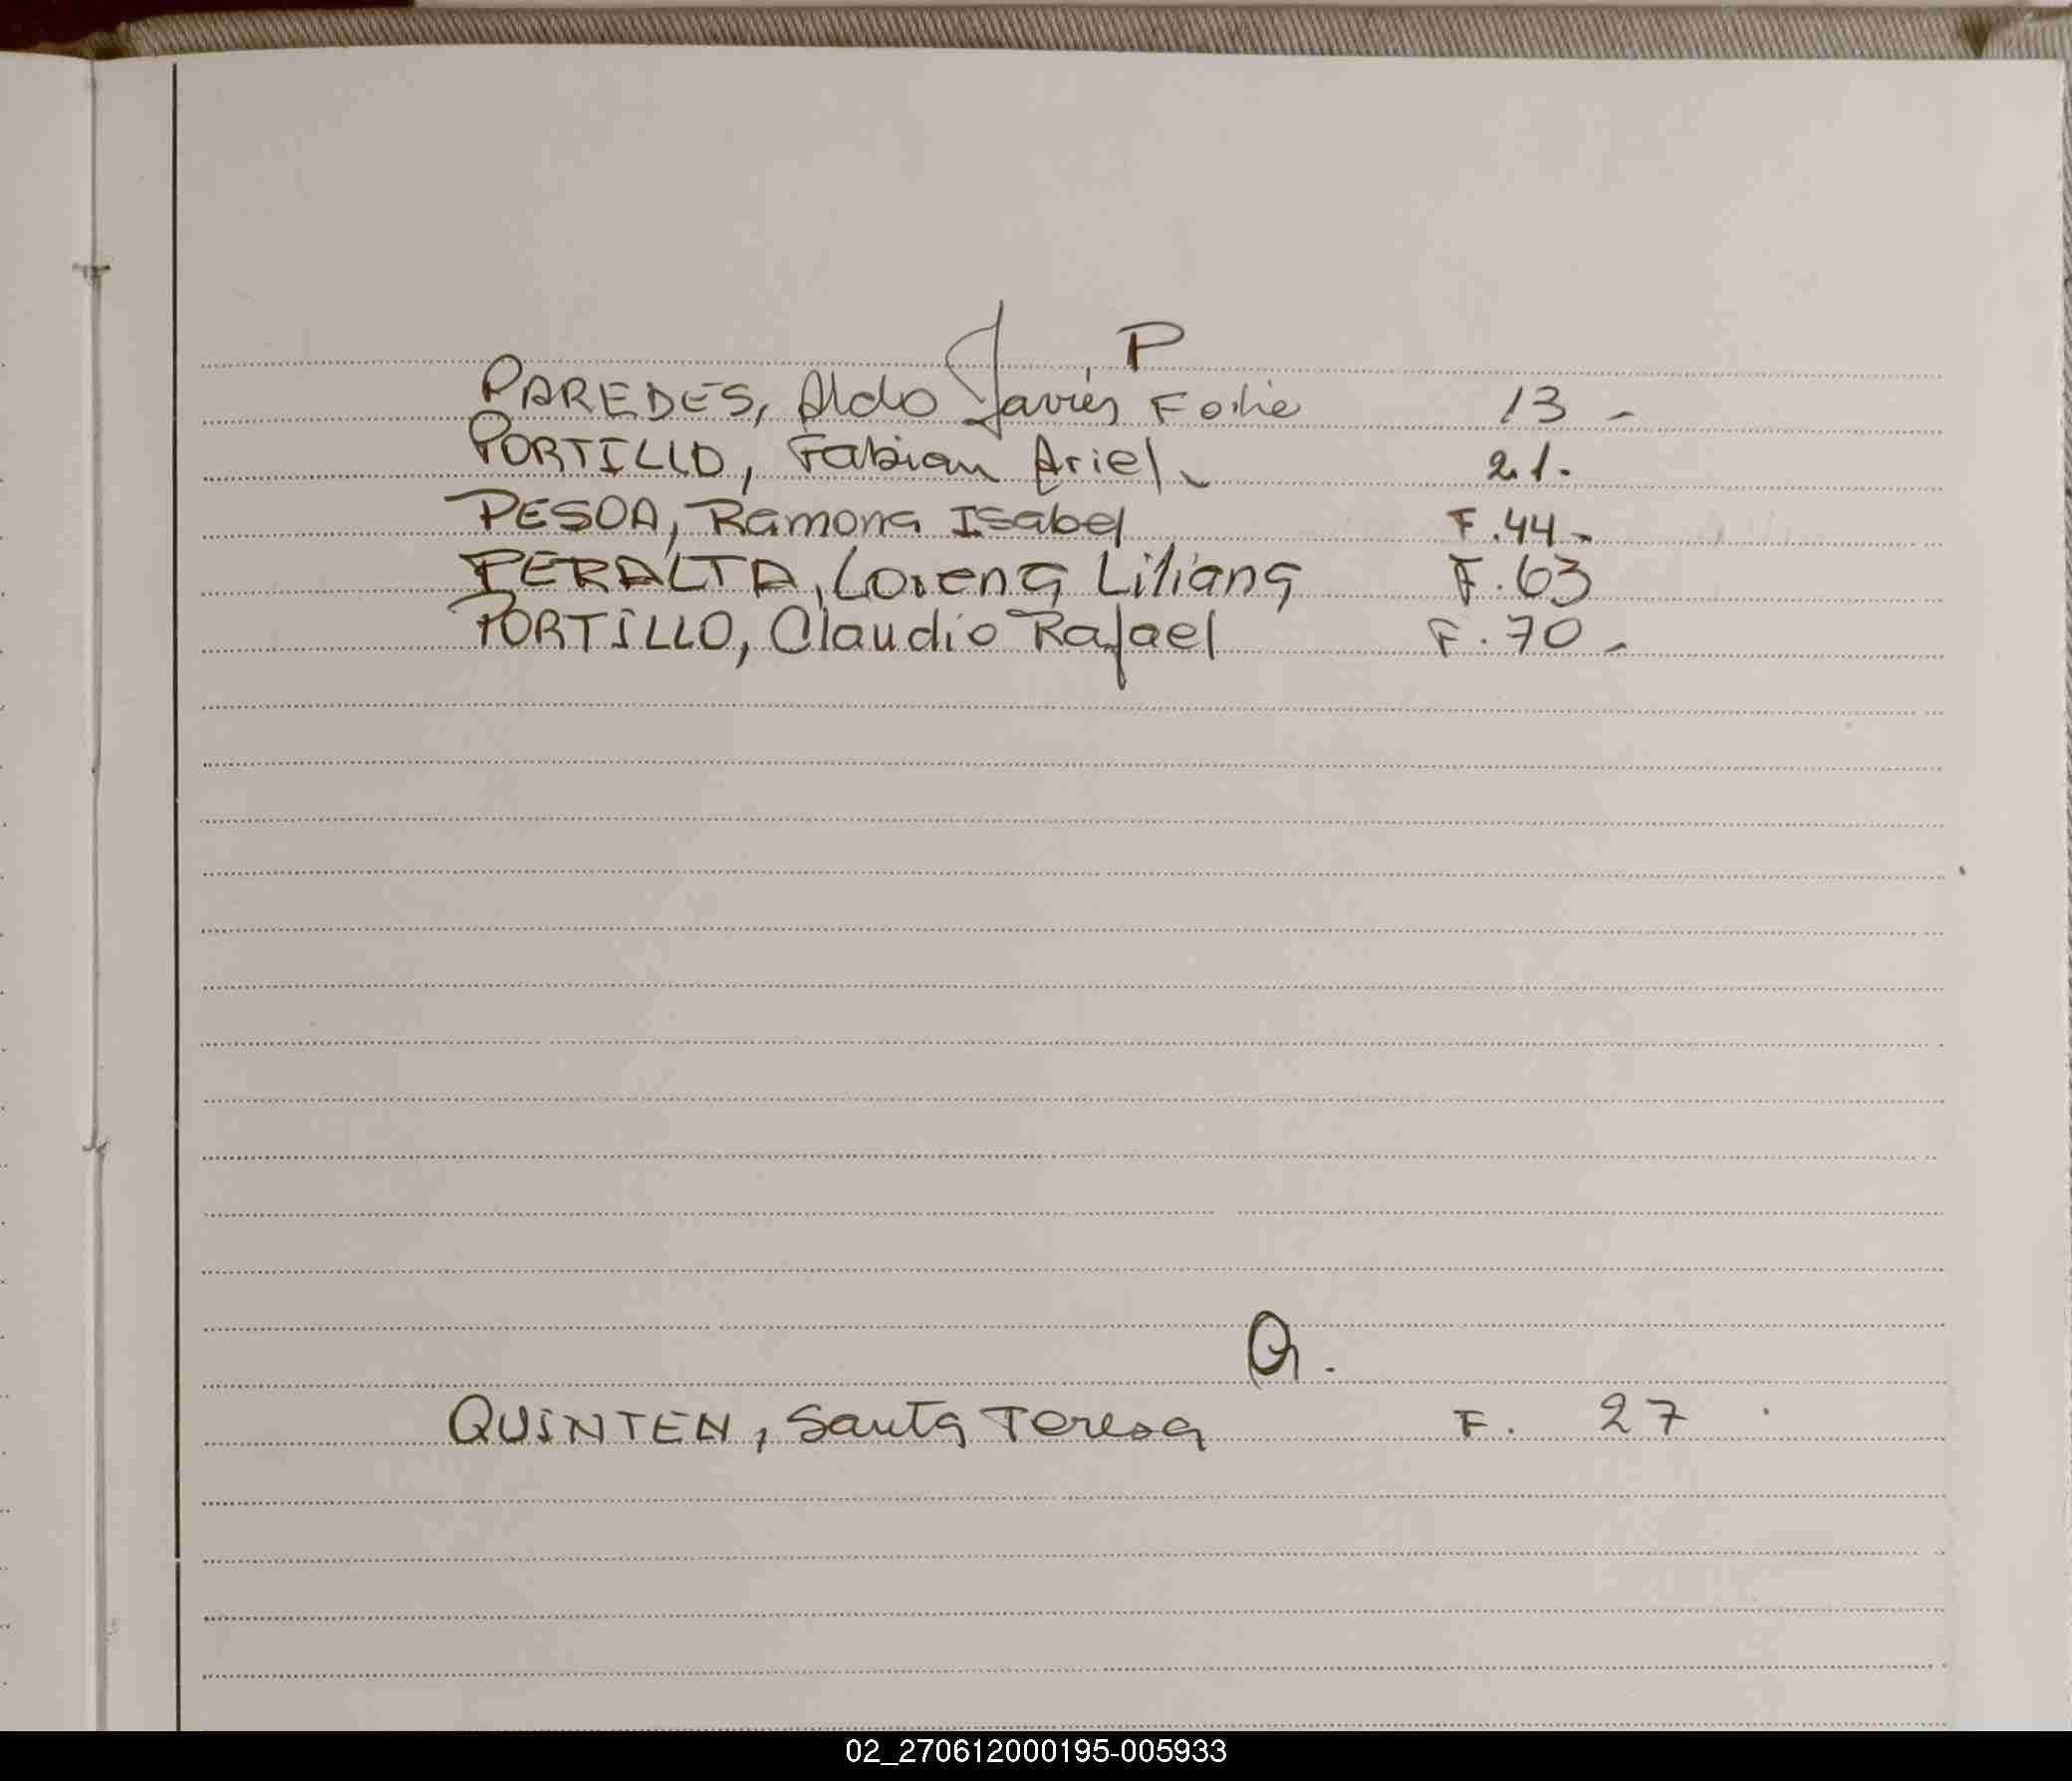 P
PAREDES, Aldo Javier Folio 13 -
PORTILLO, Fabian Ariel 21.
PESOA, Ramona Isabel F. 44 -
PERALTA, Lorena Liliana F. 63
PORTILLO, Claudio Rafael F. 70 -
Q.
QUINTEN, Santa Teresa F. 27
02_270612000195-005933